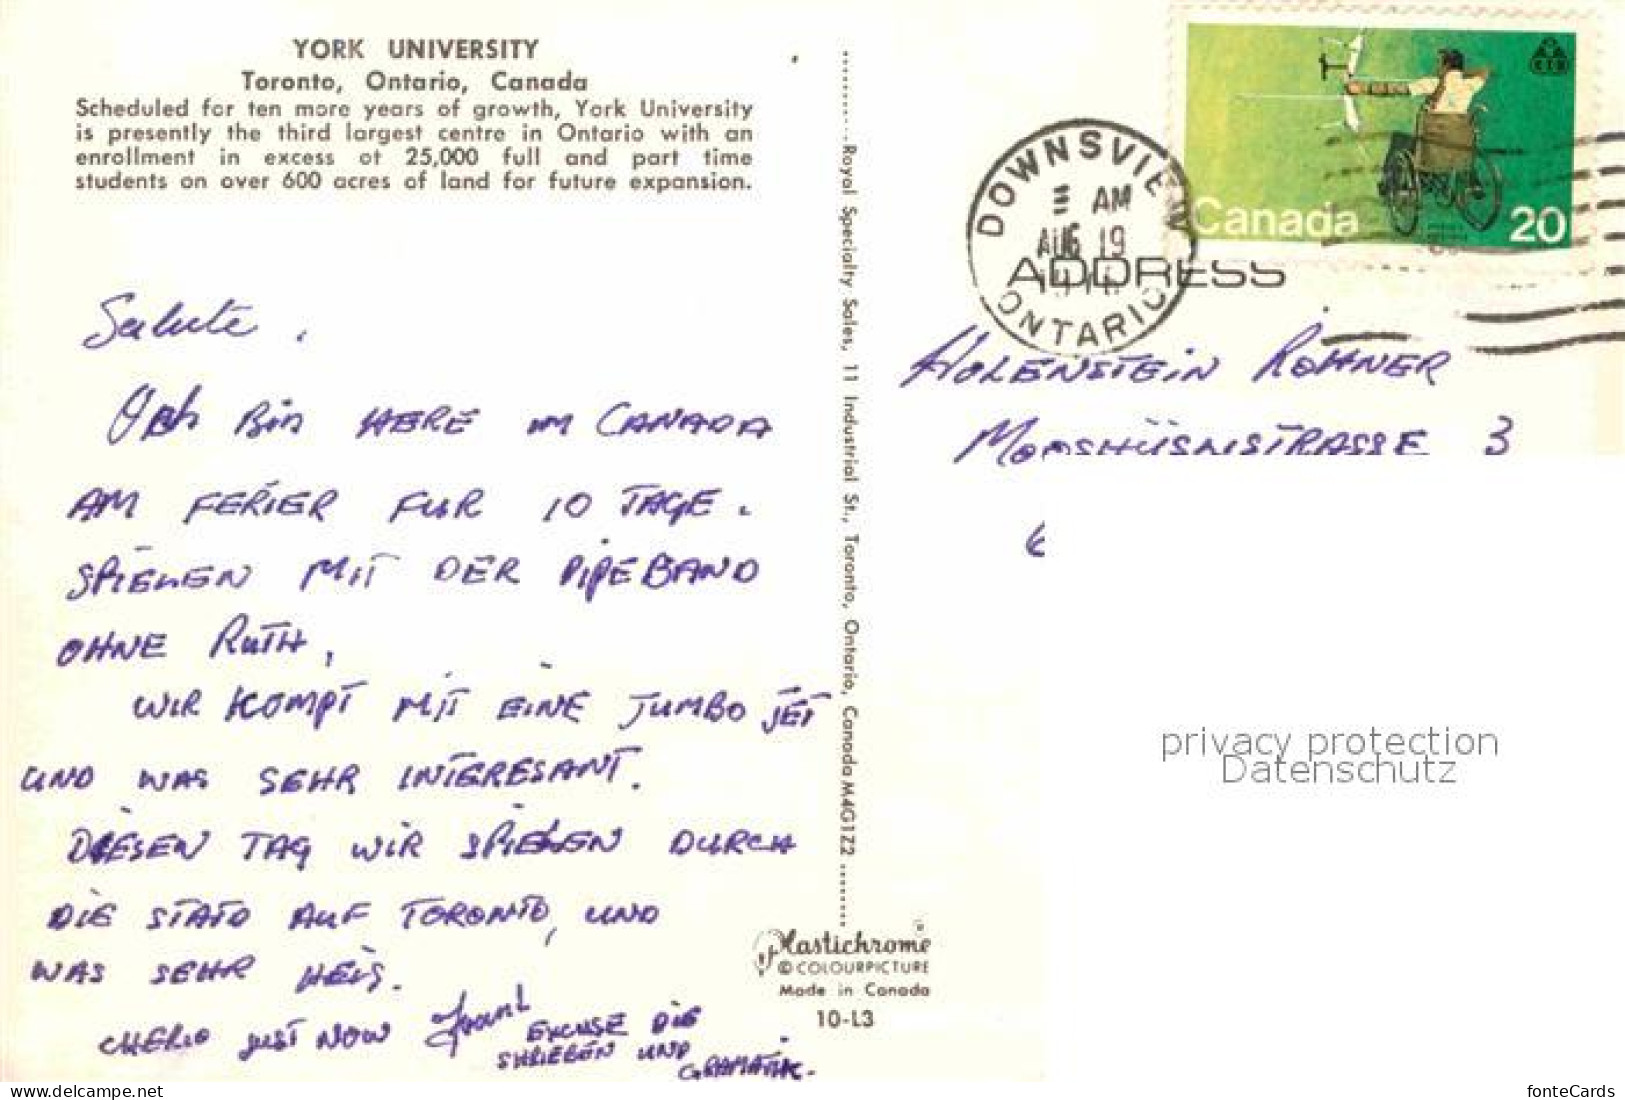 YORK UNIVERSITY
Toronto, Ontario, Canada
Scheduled for ten more years of growth, York University
is presently the third largest centre in Ontario with an
enrollment in excess of 25,000 full and part time
students on over 600 acres of land for future expansion.
Salute.
BIN HERE IM CANADA
AM FERIER FUR 10 TAGE.
SPIELEN MIT DER PIPEBAND
OHNE RUTH,
WIR KOMPT MIT EINE JUMBO JET
UND WAS SEHR INTERESANT.
DIESEN TAG WIR SPIELEN DURCH
DIE STATD AUF TORONTO, UND
WAS SEHR HEIS.
CHERIO JUST NOW
EXCUSE DIE
SHRIEBEN UND
GRAMATIK.
Royal Specialty Sales, 11 Industrial St., Toronto, Ontario, Canada M4G1Z2
Plastichrome
© COLOURPICTURE
Made in Canada
10-L3
Canada 20
DOWNSVIEW
AM
AUG 19
ONTARIO
ADDRESS
HOLENSTEIN ROHNER
3
privacy protection
Datenschutz
delcampe.net
fonteCards